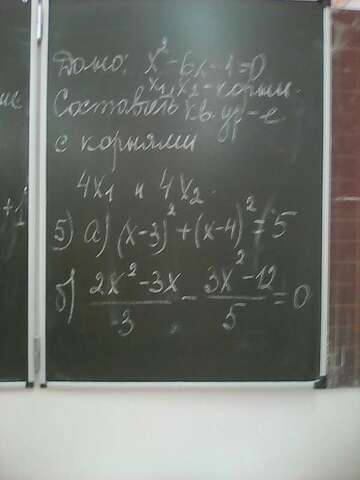 Дано: x² - 6x - 1 = 0
x₁, x₂ - корни.
Составить кв. ур-е
с корнями
4x₁ и 4x₂.
+1
5) а) (x-3)² + (x-4)² = 5
б) (2x² - 3x)/3 - (3x² - 12)/5 = 0